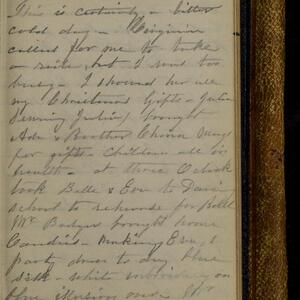 This is certainly a bitter
cold day - Virginia
called for me to take
a ride, but I was too
busy - I showed her all
my Christmas Gifts - Julia
(Jenning Julia) brought
Ada & Brother China Mugs
for gifts - Children all in
health - at three O clock
took Belle & Eva to Dancing
school to rehearse for Ball
Mr Badger brought home
Candies - making Eva's
party dress to day blue
silk - white embroidery on
blue illusion over